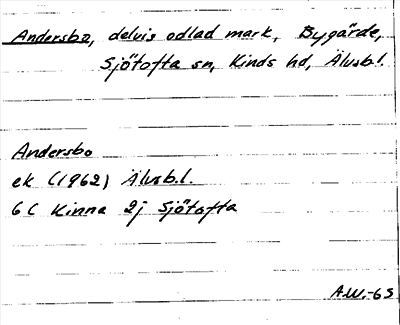 Andersbo, delvis odlad mark, Bygärde,
Sjötofta sn, Kinds hd, Älvsb.l.
Andersbo
ek (1962) Älvsb.l.
6C Kinna 2j Sjötofta
A.W.-65